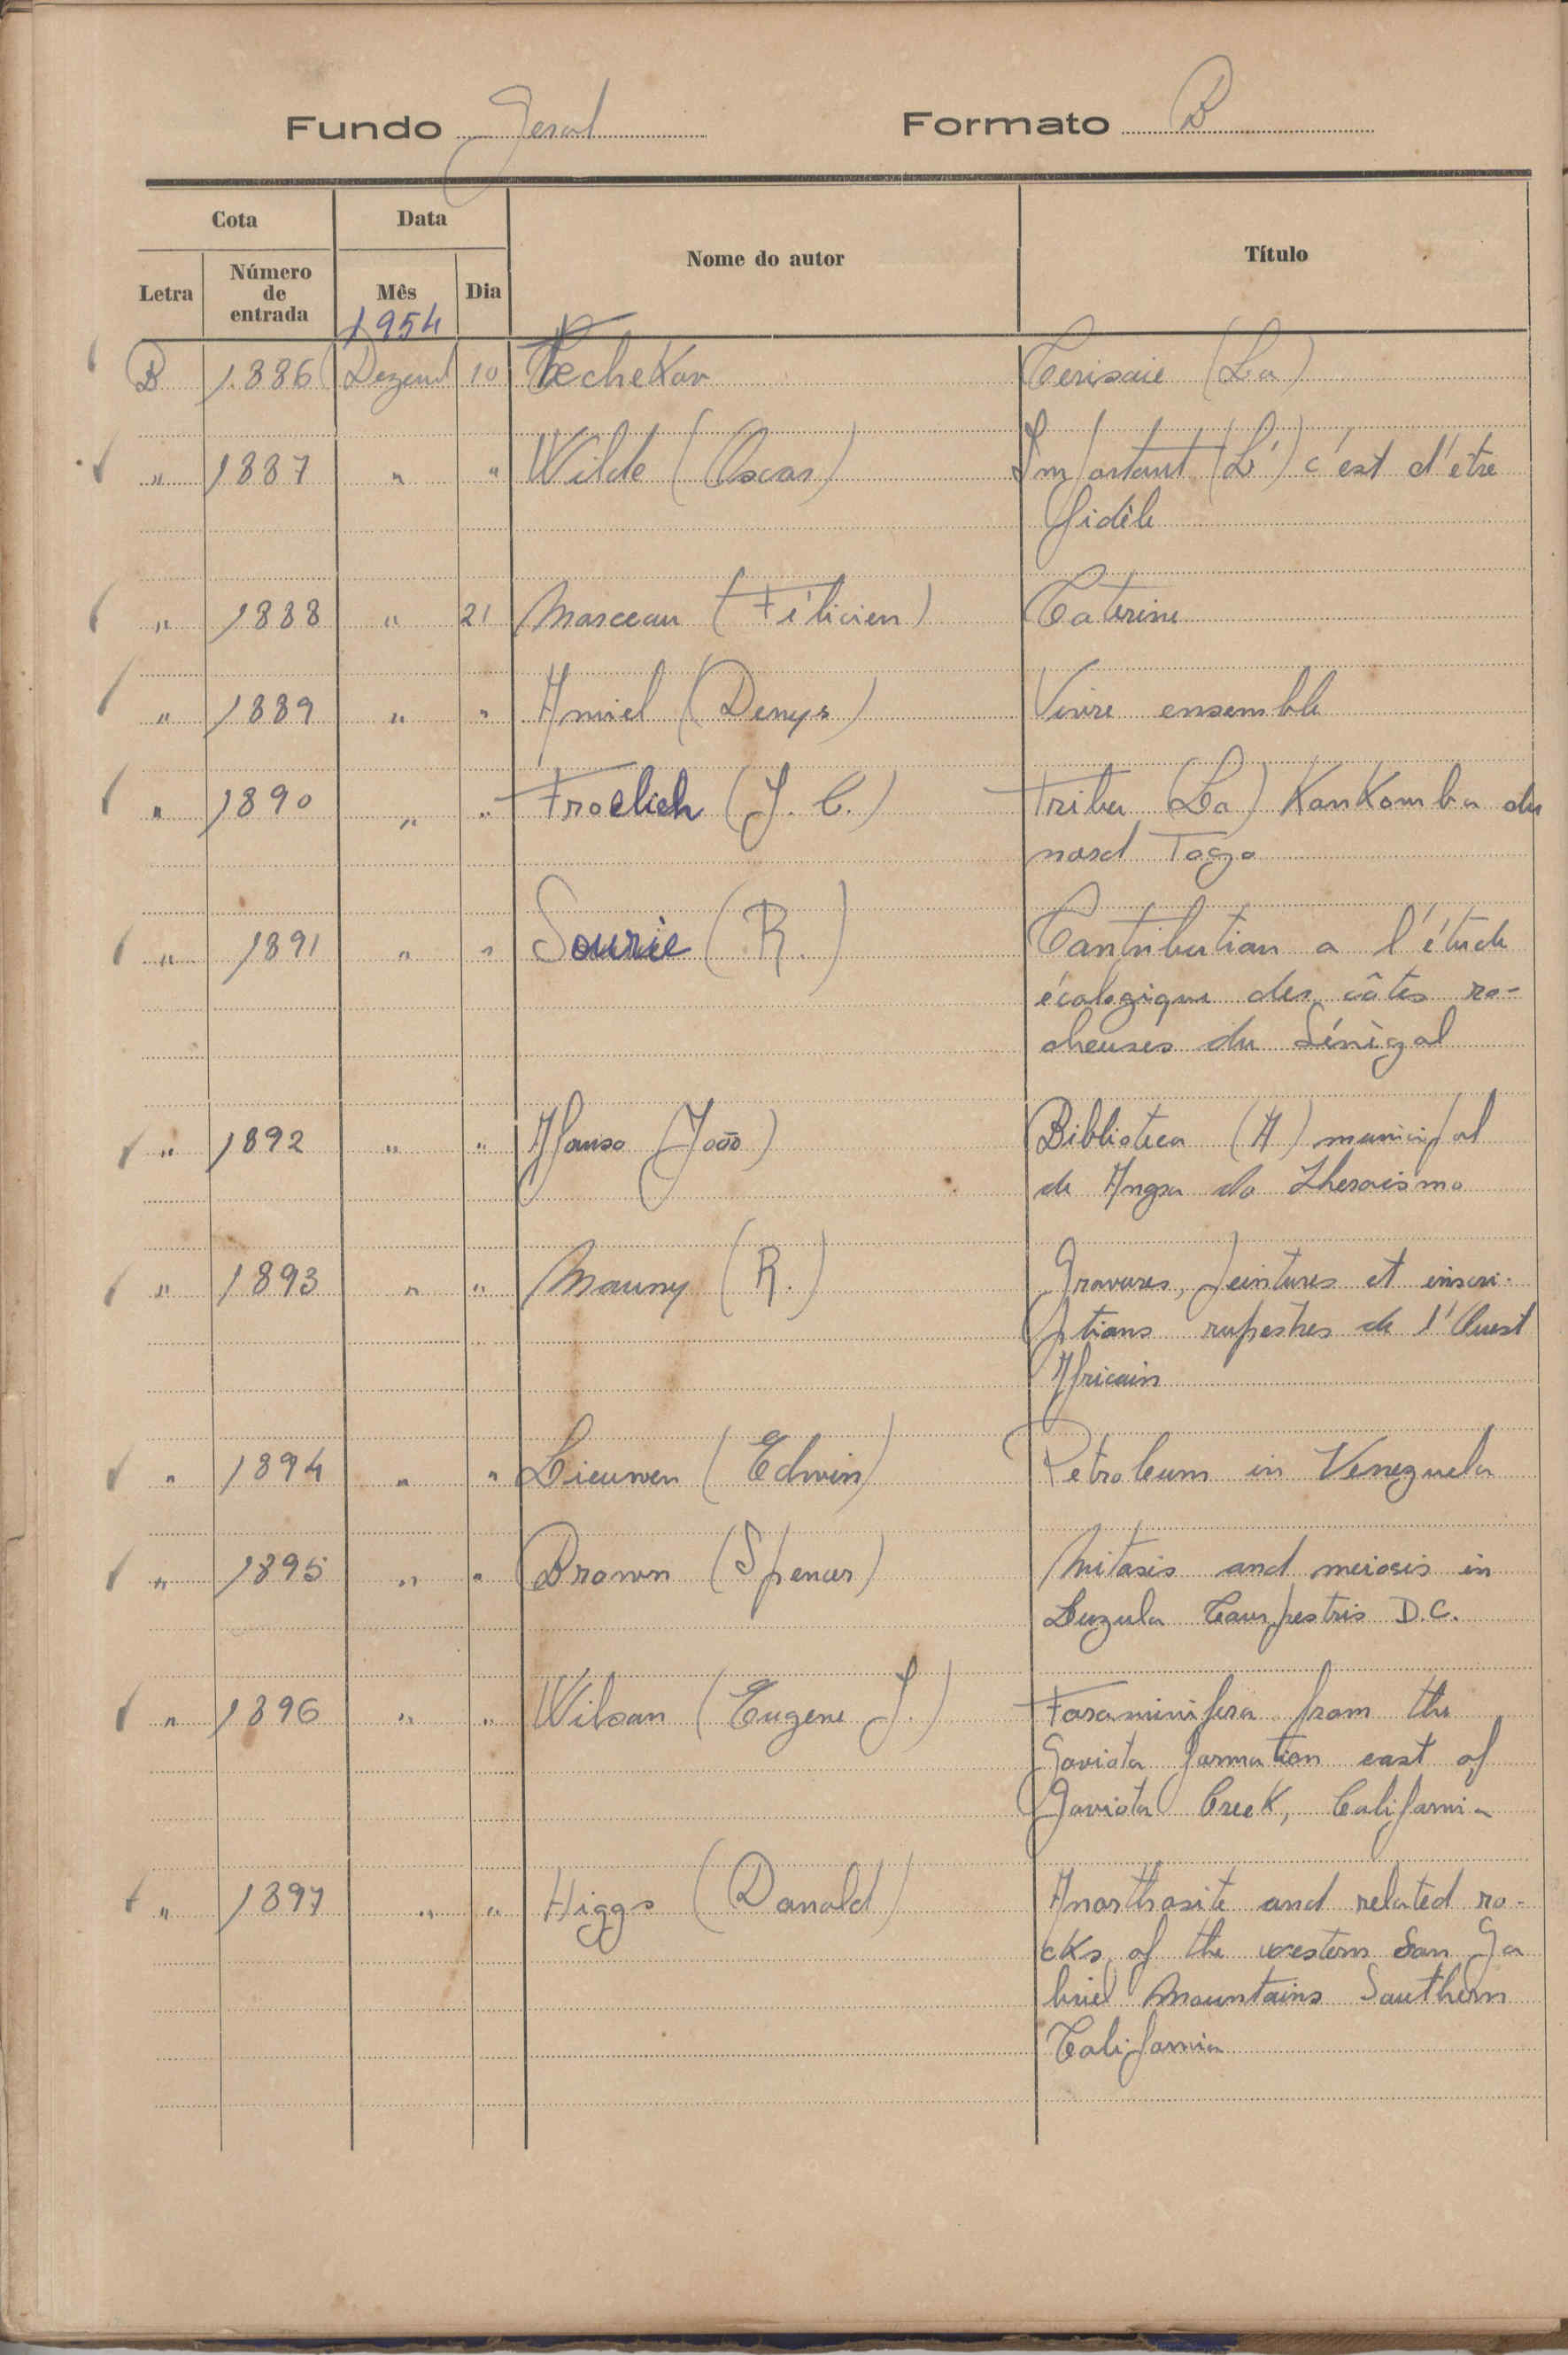 Fundo Geral Formato B
Cota Data Nome do autor Título
Letra Número de entrada Mês Dia
1954
B 1886 Dezemb 10 Tchekov Cerisaie (La)
" 1887 " " Wilde (Oscar) Important (L') c'est d'etre
fidèle
" 1888 " 21 Marceau (Félicien) Caterine
" 1889 " " Amiel (Denys) Vivre ensemble
" 1890 " " Froelich (J. C.) Tribu (La) Konkomba du
nord Togo
" 1891 " " Sourie (R.) Contribution a l'étude
écologique des côtes ro-
cheuses du Sénégal
" 1892 " " Afonso (João) Biblioteca (A) municipal
de Angra do Heroismo
" 1893 " " Mauny (R.) Gravures, peintures et inscri-
ptions rupestres de l'Ouest
Africain
" 1894 " " Lieuwen (Edwin) Petroleum in Venezuela
" 1895 " " Brown (Spencer) Mitosis and meiosis in
Luzula Campestris D.C.
" 1896 " " Wilson (Eugene J.) Foraminifera from the
Gaviota formation east of
Gaviota Creek, California
" 1897 " " Higgs (Donald) Anorthosite and related ro-
cks of the western San Ga
briel Mountains Southern
California